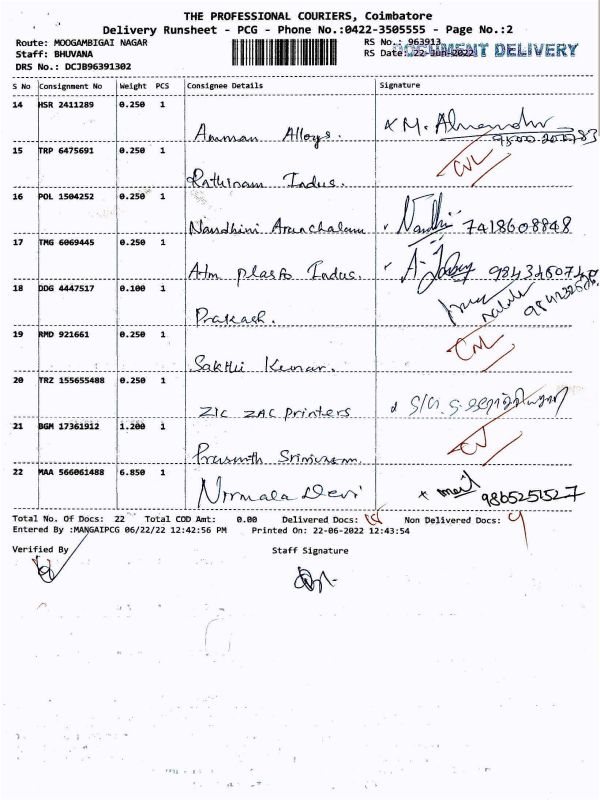 THE PROFESSIONAL COURIERS, Coimbatore
Delivery Runsheet - PCG - Phone No.:0422-3505555 - Page No.:2
Route: MOOGAMBIGAI NAGAR RS No.: 963913
Staff: BHUVANA RS Date: 22-Jun-2022 DOCUMENT DELIVERY
DRS No.: DCJB96391302
S No Consignment No Weight PCS Consignee Details Signature
14 HSR 2411289 0.250 1
Amman Alloys. x M.
15 TRP 6475691 0.250 1
Rathinam Indus.
16 POL 1504252 0.250 1
Nandhini Arunchalam Nandhi 7418608848
17 TMG 6069445 0.250 1
Atm plasto Indus.
18 DDG 4447517 0.100 1
Prakash.
19 RMD 921661 0.250 1
Sakthi Kumar.
20 TRZ 155655488 0.250 1
ZIC ZAC printers
21 BGM 17361912 1.200 1
Prasanth Srinivasan.
22 MAA 566061488 6.850 1
Nirmala Devi 9865251527
Total No. Of Docs: 22 Total COD Amt: 0.00 Delivered Docs: Non Delivered Docs:
Entered By :MANGAIPCG 06/22/22 12:42:56 PM Printed On: 22-06-2022 12:43:54
Verified By Staff Signature